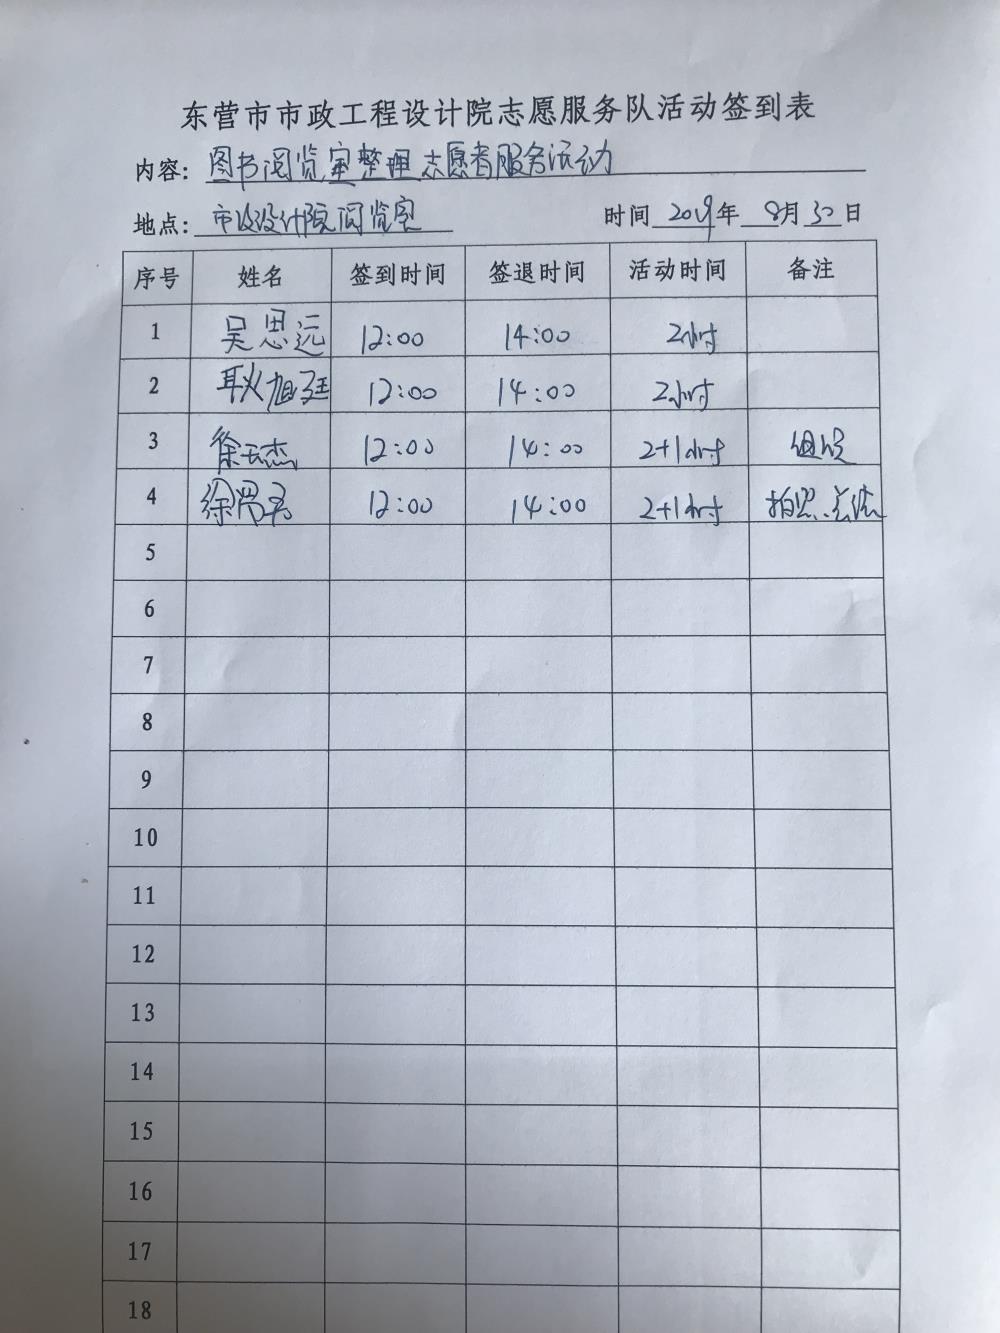 东营市市政工程设计院志愿服务队活动签到表
内容: 图书阅览室整理志愿者服务活动
地点: 市政设计院阅览室 时间 2019年 8月30日
序号 姓名 签到时间 签退时间 活动时间 备注
1 吴思远 12:00 14:00 2小时
2 耿旭廷 12:00 14:00 2小时
3 徐云杰 12:00 14:00 2+1小时 组织
4 徐 12:00 14:00 2+1小时 拍照、总结
5
6
7
8
9
10
11
12
13
14
15
16
17
18